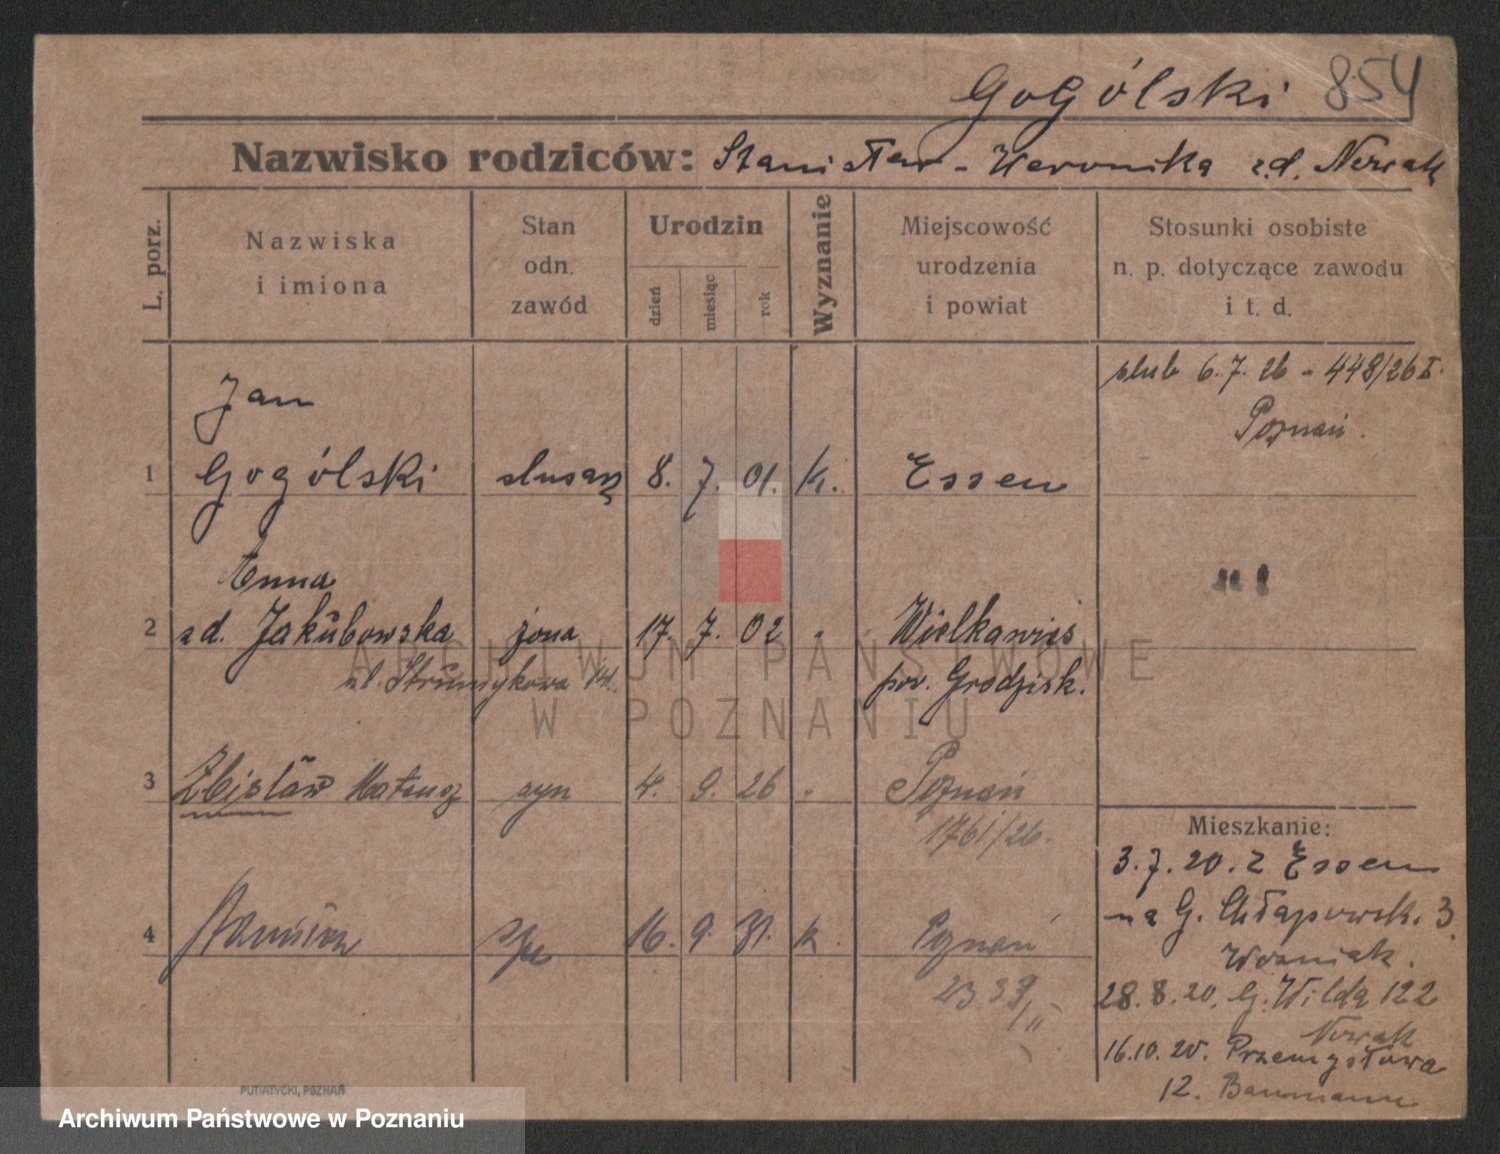 Gogólski 854
Nazwisko rodziców: Stanisław - Weronika z.d. Nowak
L. porz.
Nazwiska
i imiona
Stan
odn.
zawód
Urodzin
dzień
miesiąc
rok
Wyznanie
Miejscowość
urodzenia
i powiat
Stosunki osobiste
n. p. dotyczące zawodu
i t. d.
ślub 6.7.26 - 448/26 I.
Poznań.
Jan
1 Gogólski ślusarz 8. 7. 01. k. Essen
Anna
2 z d. Jakubowska żona 17. 7. 02 " Wielkawieś
ul. Strumykowa 14. pow. Grodzisk.
3 Zbisław Mateusz syn 4. 9. 26 " Poznań
1761/26.
4 Stanisław 16. 9. 31. k. Poznań
2339/II
Mieszkanie:
3.7.20. z Essen
na G. Chłapowsk. 3.
Woźniak.
28.8.20. G. Wilda 122
Nowak
16.10.20. Przemysłowa
12. Baumann
PUTIATYCKI, POZNAŃ
ARCHIWUM PAŃSTWOWE
W POZNANIU
Archiwum Państwowe w Poznaniu